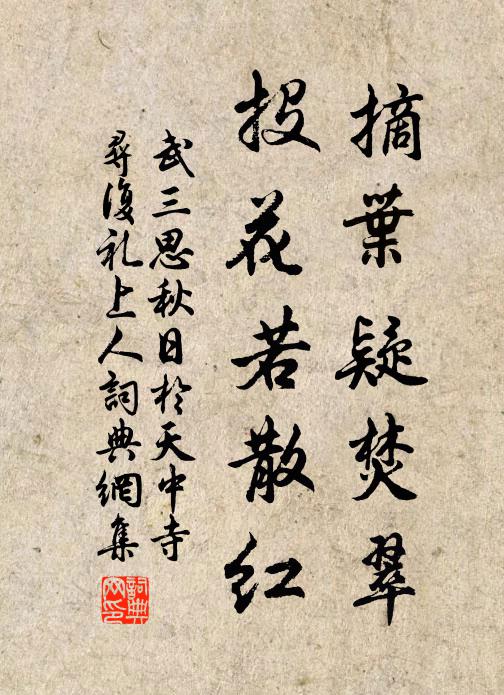 摘葉疑焚翠
投花若散紅
武三思秋日於天中寺
尋復礼上人詞典網集
詞典
网印